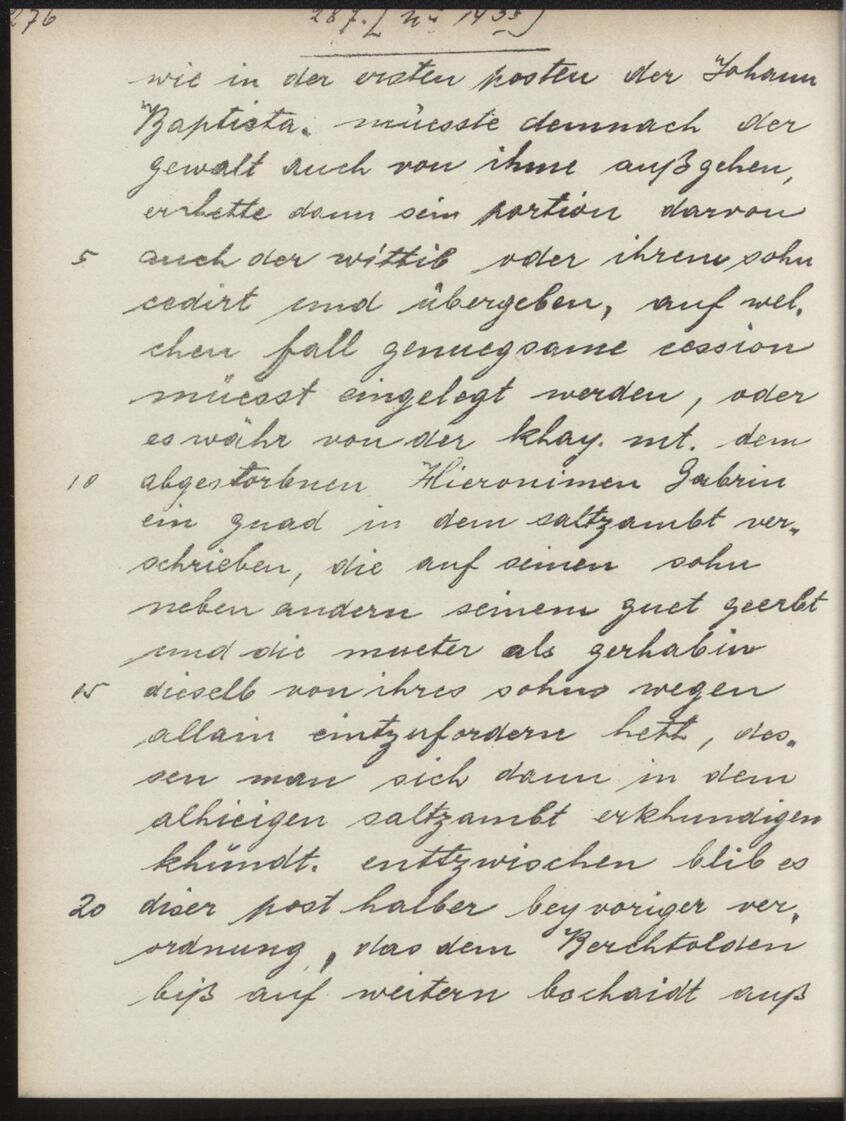 276
287. [Nr 1435]
wie in der ersten posten der Johann
Baptista. müesste demnach der
gewalt auch von ihme außgehen,
er hette dann sein portion darvon
5 auch der wittib oder ihrem sohn
cedirt und übergeben, auf wel-
chen fall genuegsame cession
müesst eingelegt werden, oder
es währ von der khay. mt. dem
10 abgestorbnen Hieronimen Gabrin
ein gnad in dem saltzambt ver-
schrieben, die auf seinen sohn
neben andern seinem guet geerbt
und die mueter als gerhabin
15 dieselb von ihres sohns wegen
allain eintzufordern hett, des-
sen man sich dann in dem
alhieigen saltzambt erkhundigen
khündt. enttzwischen blib es
20 diser post halber bey voriger ver-
ordnung, das dem Berchtolden
biß auf weitern beschaidt auß